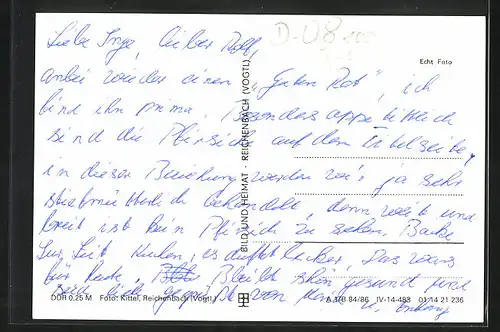 Liebe Inge, lieber Rolf,
D-08
anbei wieder einen „Guten Rat“, ich
Echt Foto
find ihn prima. Besonders appetitlich
sind die Pfirsiche auf dem Titelseite,
in dieser Beziehung werden wir ja sehr
stiefmütterlich behandelt, denn weit und
breit ist kein Pfirsich zu sehen. Backe
zur Zeit Kuchen, es duftet lecker. Das wars
für heute, Bleibt schön gesund und
seid lieb gegrüßt von
BILD UND HEIMAT · REICHENBACH (VOGTL)
DDR 0,25 M Foto: Kittel, Reichenbach (Vogtl.)
A 1/B 84/86 IV-14-483 01 14 21 236